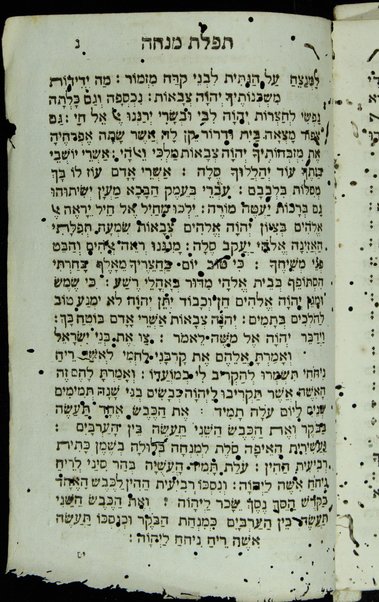 תפלת מנחה
ג
למנצח על הגתית לבני קרח מזמור : מה ידידות
משכנותיך יהוה צבאות : נכספה וגם כלתה
נפשי לחצרות יהוה לבי ובשרי ירננו אל אל חי : גם
צפור מצאה בית ודרור קן לה אשר שתה אפרחיה
את מזבחותיך יהוה צבאות מלכי ואלהי : אשרי יושבי
ביתך עוד יהללוך סלה : אשרי אדם עוז לו בך
מסלות בלבבם : עברי בעמק הבכא מעין ישיתוהו
גם ברכות יעטה מורה : ילכו מחיל אל חיל יראה אל
אלהים בציון : יהוה אלהים צבאות שמעה תפלתי
האזינה אלהי יעקב סלה : מגננו ראה אלהים והבט
פני משיחך : כי טוב יום בחצריך מאלף בחרתי
הסתופף בבית אלהי מדור באהלי רשע : כי שמש
ומגן יהוה אלהים חן וכבוד יתן יהוה לא ימנע טוב
להולכים בתמים : יהוה צבאות אשרי אדם בוטח בך :
וידבר יהוה אל משה לאמר : צו את בני ישראל
ואמרת אלהם את קרבני לחמי לאשי ריח
ניחחי תשמרו להקריב לי במועדו : ואמרת להם זה
האשה אשר תקריבו ליהוה כבשים בני שנה תמימם
שנים ליום עולה תמיד : את הכבש אחד תעשה
בבקר ואת הכבש השני תעשה בין הערבים :
ועשירית האיפה סלת למנחה בלולה בשמן כתית
רביעית ההין : עלת תמיד העשיה בהר סיני לריח
ניחח אשה ליהוה : ונסכו רביעית ההין לכבש האחד
בקדש הסך נסך שכר ליהוה : ואת הכבש השני
תעשה בין הערבים כמנחת הבקר וכנסכו תעשה
אשה ריח ניחח ליהוה :